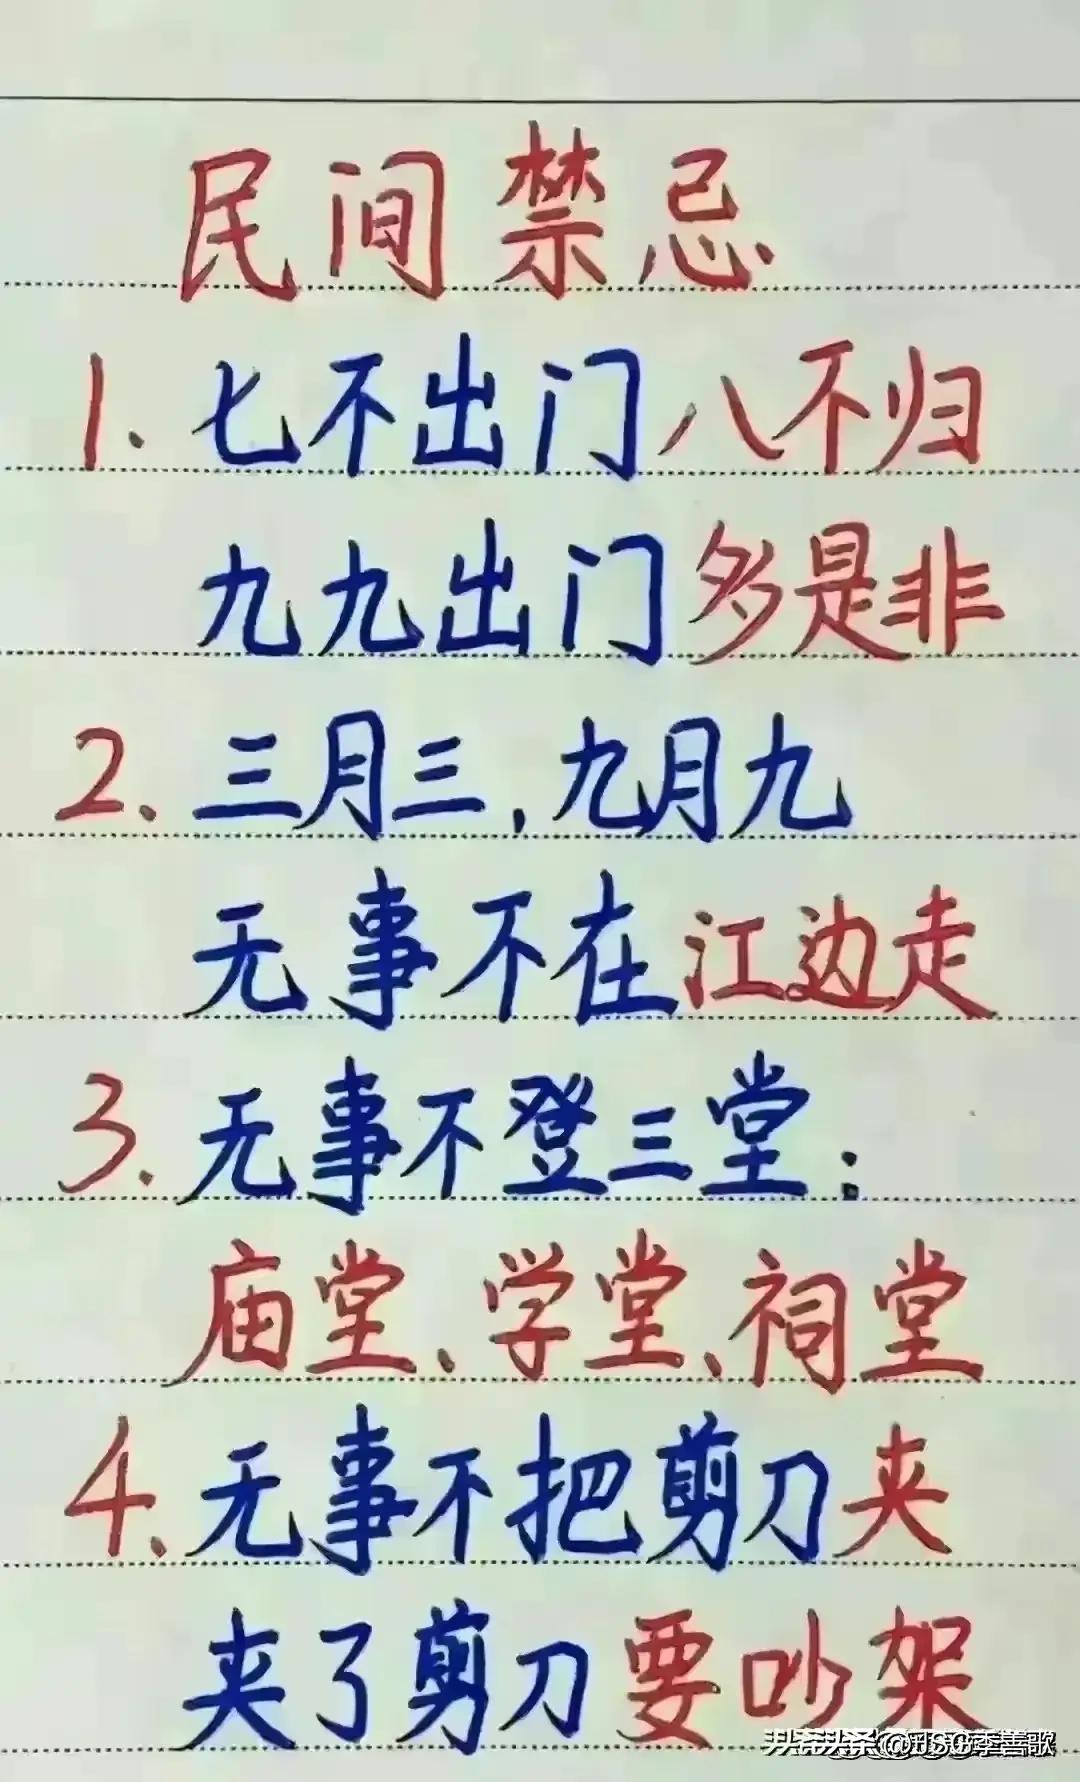 民间禁忌
1.七不出门八不归
九九出门多是非
2.三月三,九月九
无事不在江边走
3.无事不登三堂:
庙堂、学堂、祠堂
4.无事不把剪刀夹
夹了剪刀要吵架